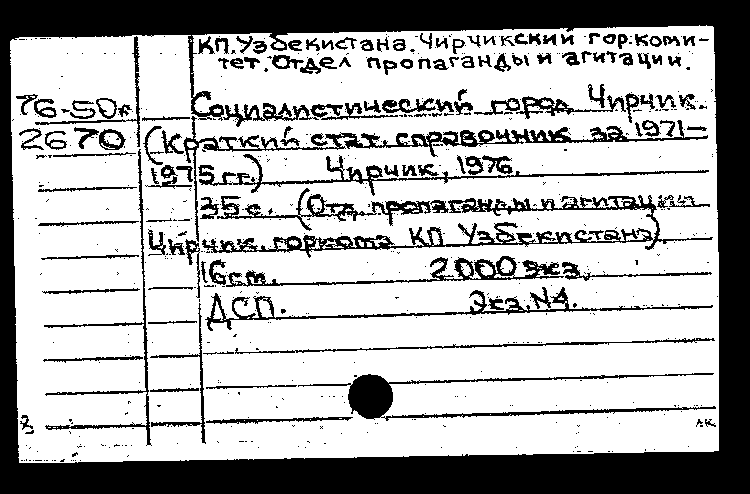 КП.Узбекистана.Чирчикский гор.коми-
тет.Отдел пропаганды и агитации.
76-50к Социалистический город Чирчик.
2670 (Краткий стат. справочник за 1971-
1975 гг.) Чирчик, 1976.
35 с. (Отд. пропаганды и агитации
Чирчик. горкома КП Узбекистана).
16см. 2000 экз.
ДСП. Экз.N4.
З